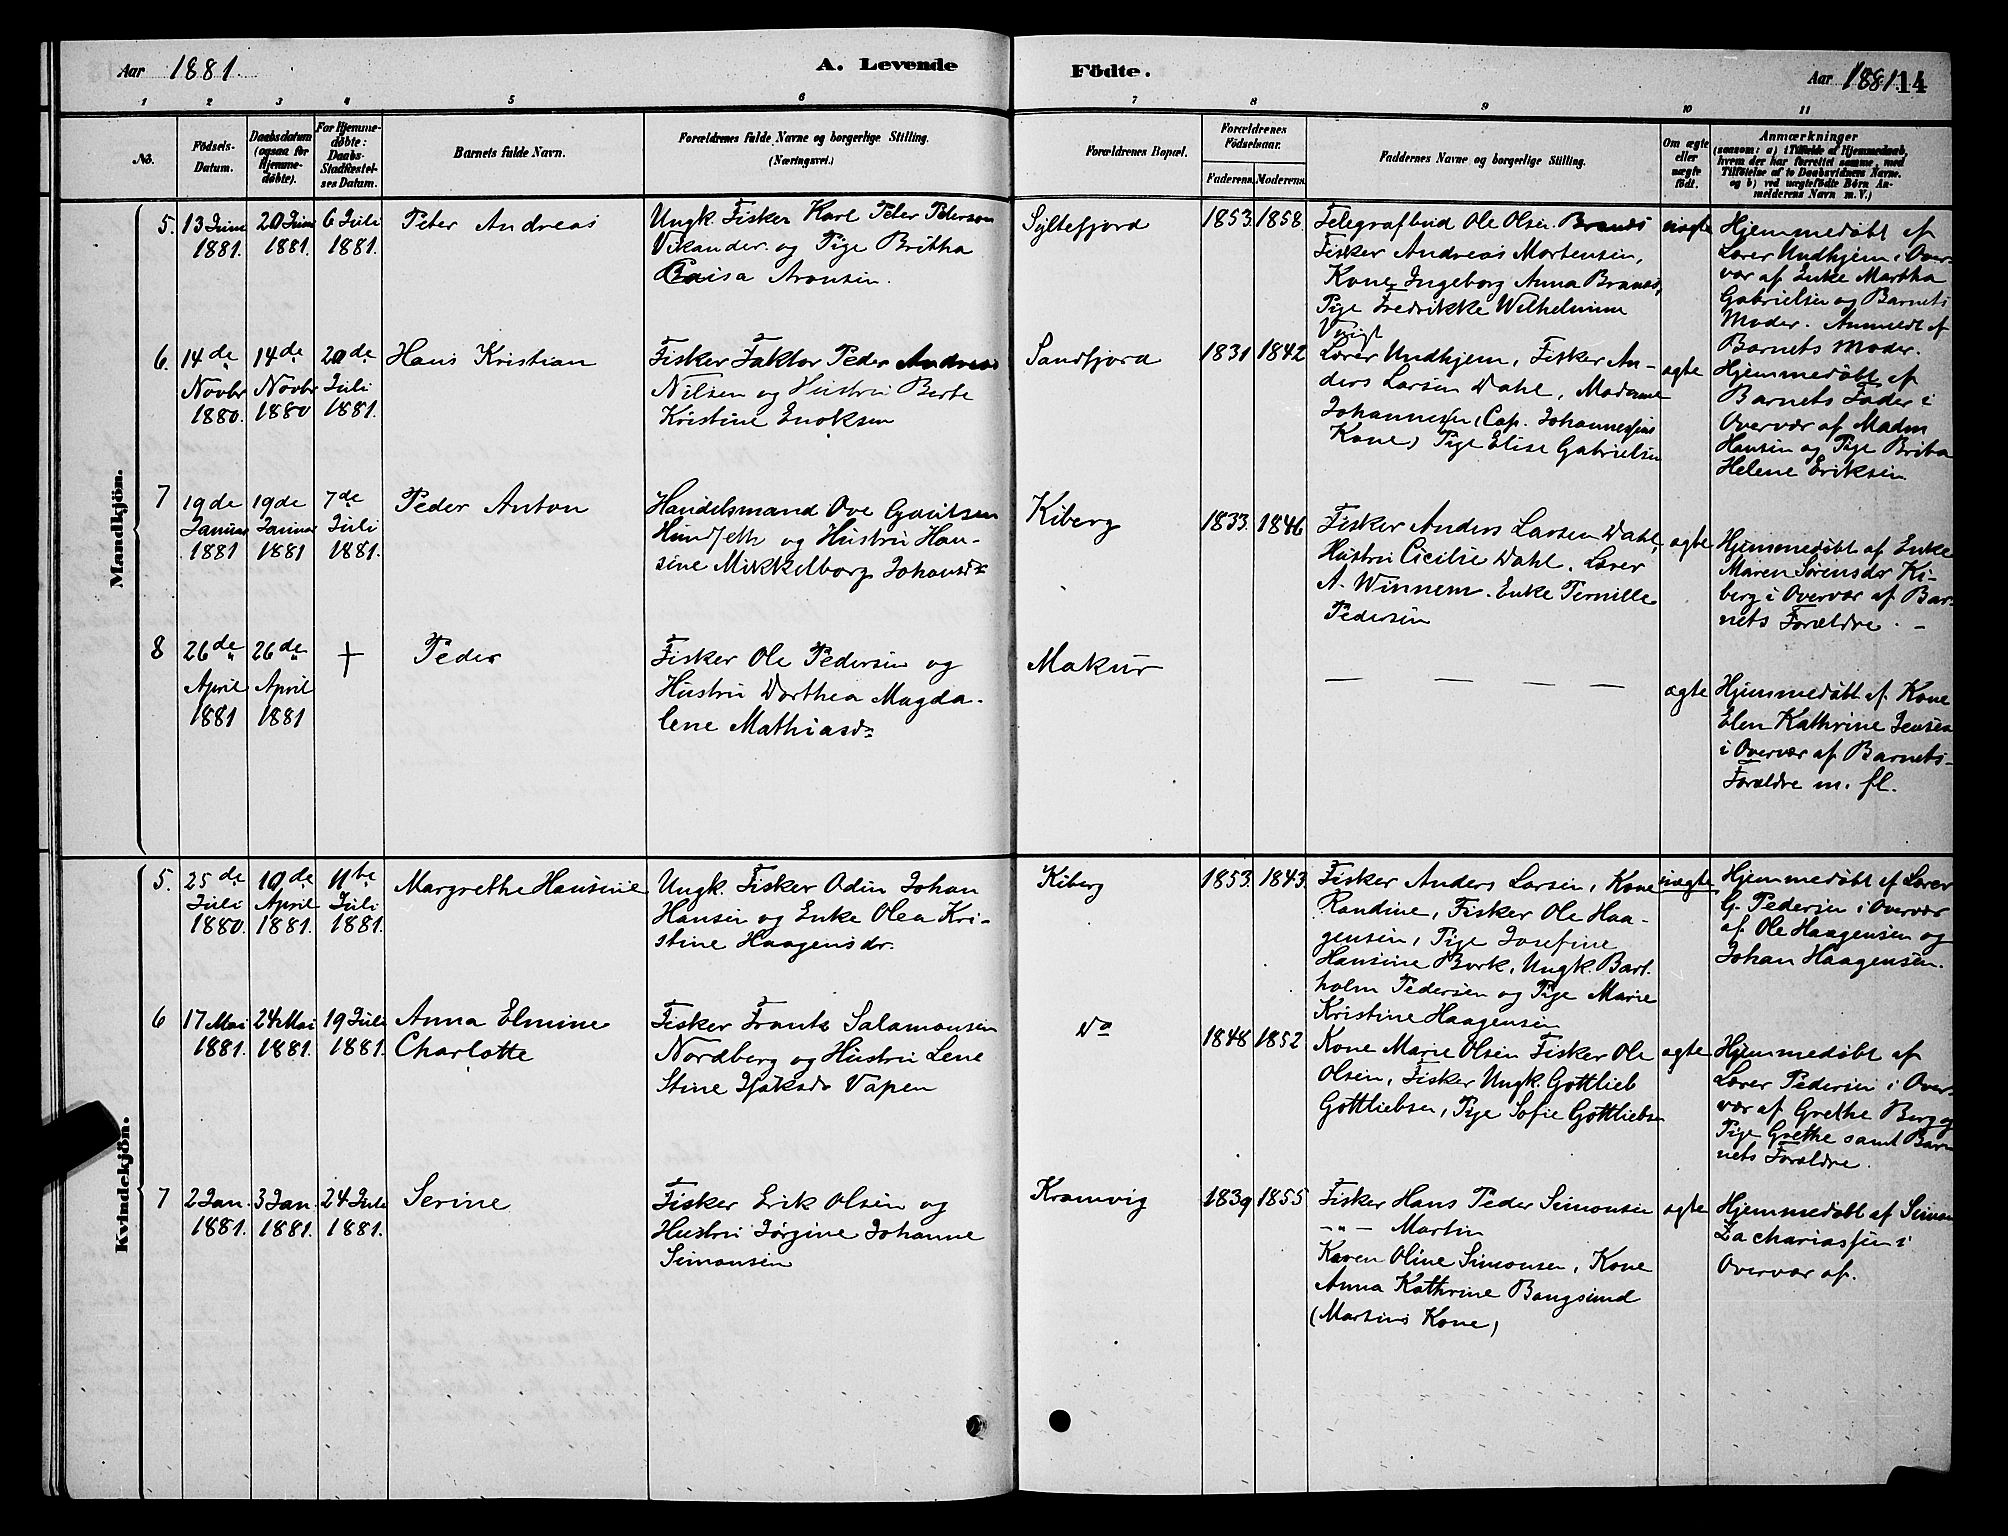 Aar 1881. A. Levende Födte. Aar 1881. 14
1 2 3 4 5 6 7 8 9 10 11
No.
Födsels-
Datum.
Daabsdatum
(ogsaa for
Hjemme-
døbte).
For Hjemme-
døbte:
Daabs-
Stadfæstel-
ses Datum.
Barnets fulde Navn.
Forældrenes fulde Navne og borgerlige Stilling.
(Næringsvei.)
Forældrenes Bopæl.
Forældrenes
Födselsaar.
Faderens. Moderens.
Faddernes Navne og borgerlige Stilling.
Om ægte
eller
uægte
födt.
Anmærkninger
(saasom: a) i Tilfælde af Hjemmedaab,
hvem der har forrettet samme, med
Tilföielse af to Daabsvidners Navne.
og b) ved uægtefödte Börn An-
melderens Navn m. V.)
Mandkjön.
5.
13 Juni
1881.
20 Juni
1881.
6 Juli
1881.
Peter Andreas
Ungk. Fisker Karl Peter Peterson
Vikander. og Pige Britha
Caisa Aronsen.
Syltefjord
1853. 1858.
Telegrafbud Ole Olsen Brands
Fisker Andreas Mortensen,
Kone Ingeborg Anna Brands,
Pige Fredrikke Wilhelmine
Voigt
uægte
Hjemmedøbt af
Lærer Undhjem i Over-
vær af Enke Martha
Gabrielsen og Barnets
Moder. Anmeldt af
Barnets Moder.
6.
14de
Novbr
1880.
14de
Novbr
1880
20de
Juli
1881.
Hans Kristian
Fisker Faktor Peder Andreas
Nilsen og Hustru Berte
Kristine Enoksen
Sandfjord
1831 1842
Lærer Undhjem, Fisker An-
ders Larsen Dahl, Madame
Johannessen (Cap. Johannessens
Kone) Pige Elise Gabrielsen
ægte
Hjemmedøbt af
Barnets Fader i
Overvær af Madm
Hansen og Pige Brita
Helene Eriksen
7
19de
Januar
1881
19de
Januar
1881
7de
Juli
1881.
Peder Anton
Handelsmand Ove
og Hustru Han-
sine Mikkelborg Johansdr
Kiberg
1833. 1846
Fisker Anders Larsen Dahl,
Hustru Cicilie Dahl. Lærer
A. Winnem. Enke Pernille
Pedersen
ægte
Hjemmedøbt af Enke
Maren Sørensdr Ki-
berg i Overvær af Bar-
nets Forældre. –
8
26de
April
1881
26de
April
1881
+
Peder
Fisker Ole Pedersen og
Hustru Dorthea Magda-
lene Mathiasdr
Makur
— — — —
ægte
Hjemmedøbt af Kone
Elen Kathrine Jensen
i Overvær af Barnets
Forældre m. fl.
Kvindekjön.
5.
25de
Juli
1880.
10de
April
1881.
11te
Juli
1881.
Margrethe Hansine
Ungk. Fisker Odin Johan
Hansen og Enke Olea Kri-
stine Haagensdr.
Kiberg
1853. 1843.
Fisker Anders Larsen, Kone
Randine, Fisker Ole Haa-
gensen, Pige Josefine
Hansine Bork, Ungk. Bart-
holm Pedersen og Pige Marie
Kristine Haagensen
uægte
Hjemmedøbt af Lærer
G. Pedersen i Overvær
af Ole Haagensen og
Johan Haagensen.
6
17 Mai
1881.
24 Mai
1881.
19 Juli
1881.
Anna Elmine
Charlotte
Fisker Frantz Salamonsen
Nordberg og Hustru Lene
Stine Isaksdr Vapen
Do
1848 1852
Kone Marie Olsen Fisker Ole
Olsen, Fisker Ungk. Gottlieb
Gottliebsen, Pige Sofie Gottliebsen
ægte
Hjemmedøbt af
Lærer Pedersen i Over-
vær af Grethe Berg og
Pige Grethe samt Bar-
nets Forældre.
7
2 Jan.
1881.
3 Jan.
1881.
24 Juli
1881.
Serine
Fisker Erik Olsen og
Hustru Jørgine Johanne
Simonsen
Kramvig
1839 1855
Fisker Hans Peder Simonsen
–"– Martin
Karen Oline Simonsen, Kone
Anna Kathrine Bangsund
(Martins Kone)
ægte
Hjemmedøbt af Simon
Zachariassen i
Overvær af.